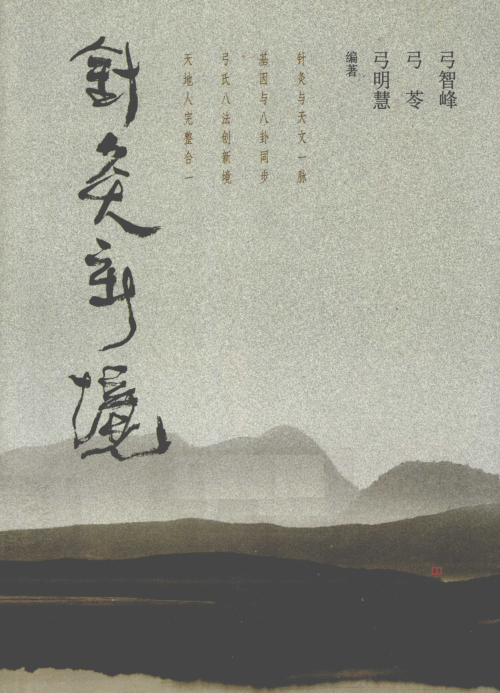 弓智峰
弓苓
弓明慧
编著
针灸与天文一脉
基因与八卦同步
弓氏八法创新境
天地人完整合一
針灸新境